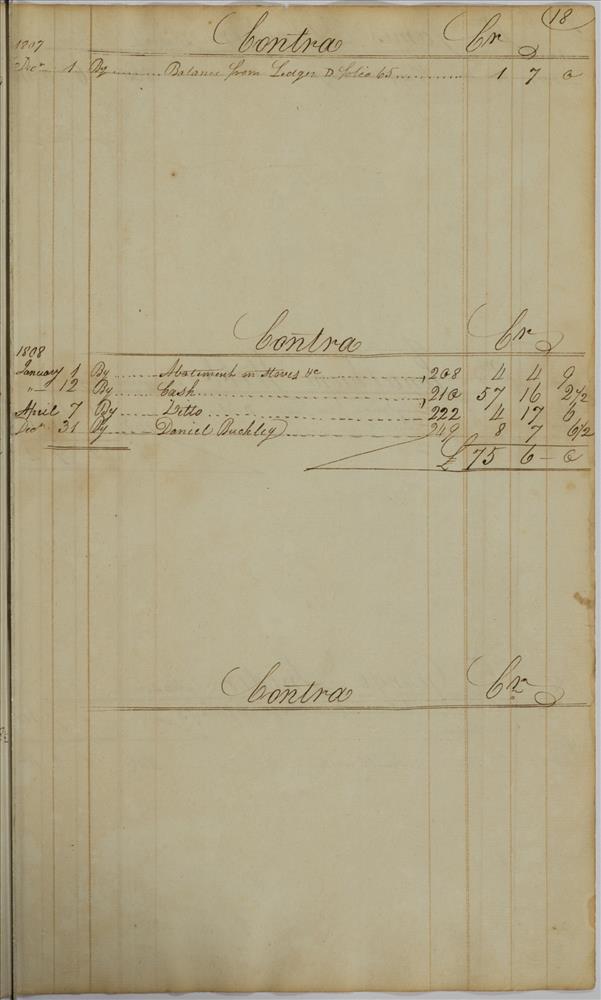 18
1807 Contra Cr
Decr 1 By Balance from Ledger D folio 65 1 7 0
1808 Contra Cr
January 1 By Abatement on Staves &c 208 4 4 9
" 12 By Cash 210 57 16 2 1/2
April 7 By Ditto 222 4 17 6
Decr 31 By Daniel Buckley 249 8 7 6 1/2
£ 75 6 - 0
Contra Cr